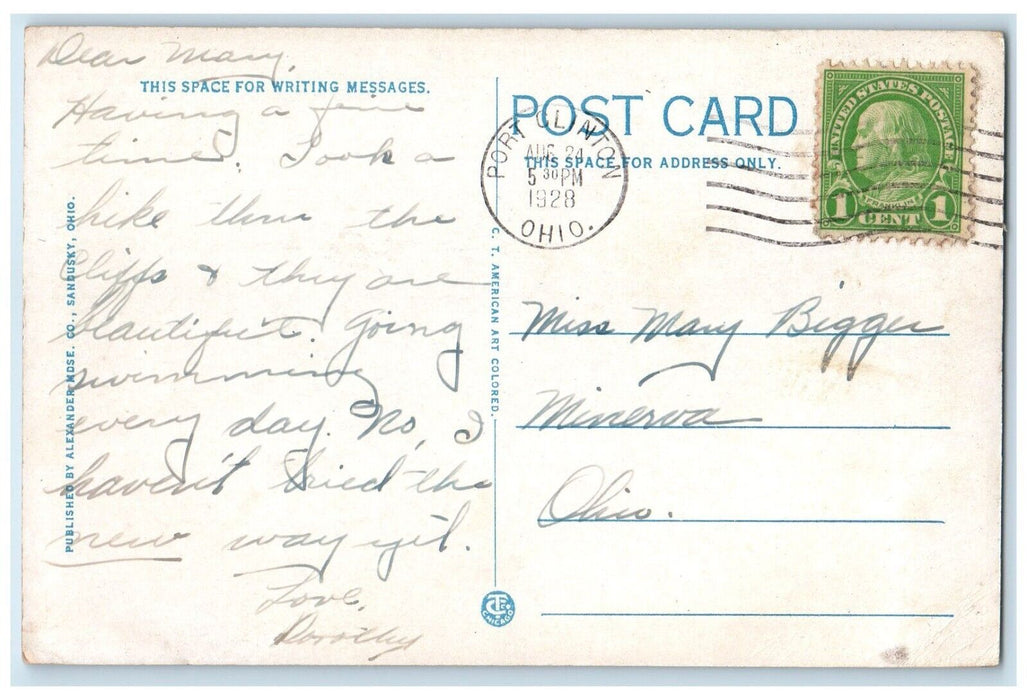 Dear Mary,
THIS SPACE FOR WRITING MESSAGES.
Having a fine
time. Took a
hike thru the
Cliffs & they are
beautiful. Going
swimming
every day. No, I
haven't tried the
new way yet.
Love,
Dorothy
PUBLISHED BY ALEXANDER MDSE. CO., SANDUSKY, OHIO.
C. T. AMERICAN ART COLORED.
CT CO
CHICAGO
POST CARD
THIS SPACE FOR ADDRESS ONLY.
PORT CLINTON
AUG 24
5 30 PM
1928
OHIO.
UNITED STATES POSTAGE
FRANKLIN
1 CENT 1
Miss Mary Bigger
Minerva
Ohio.